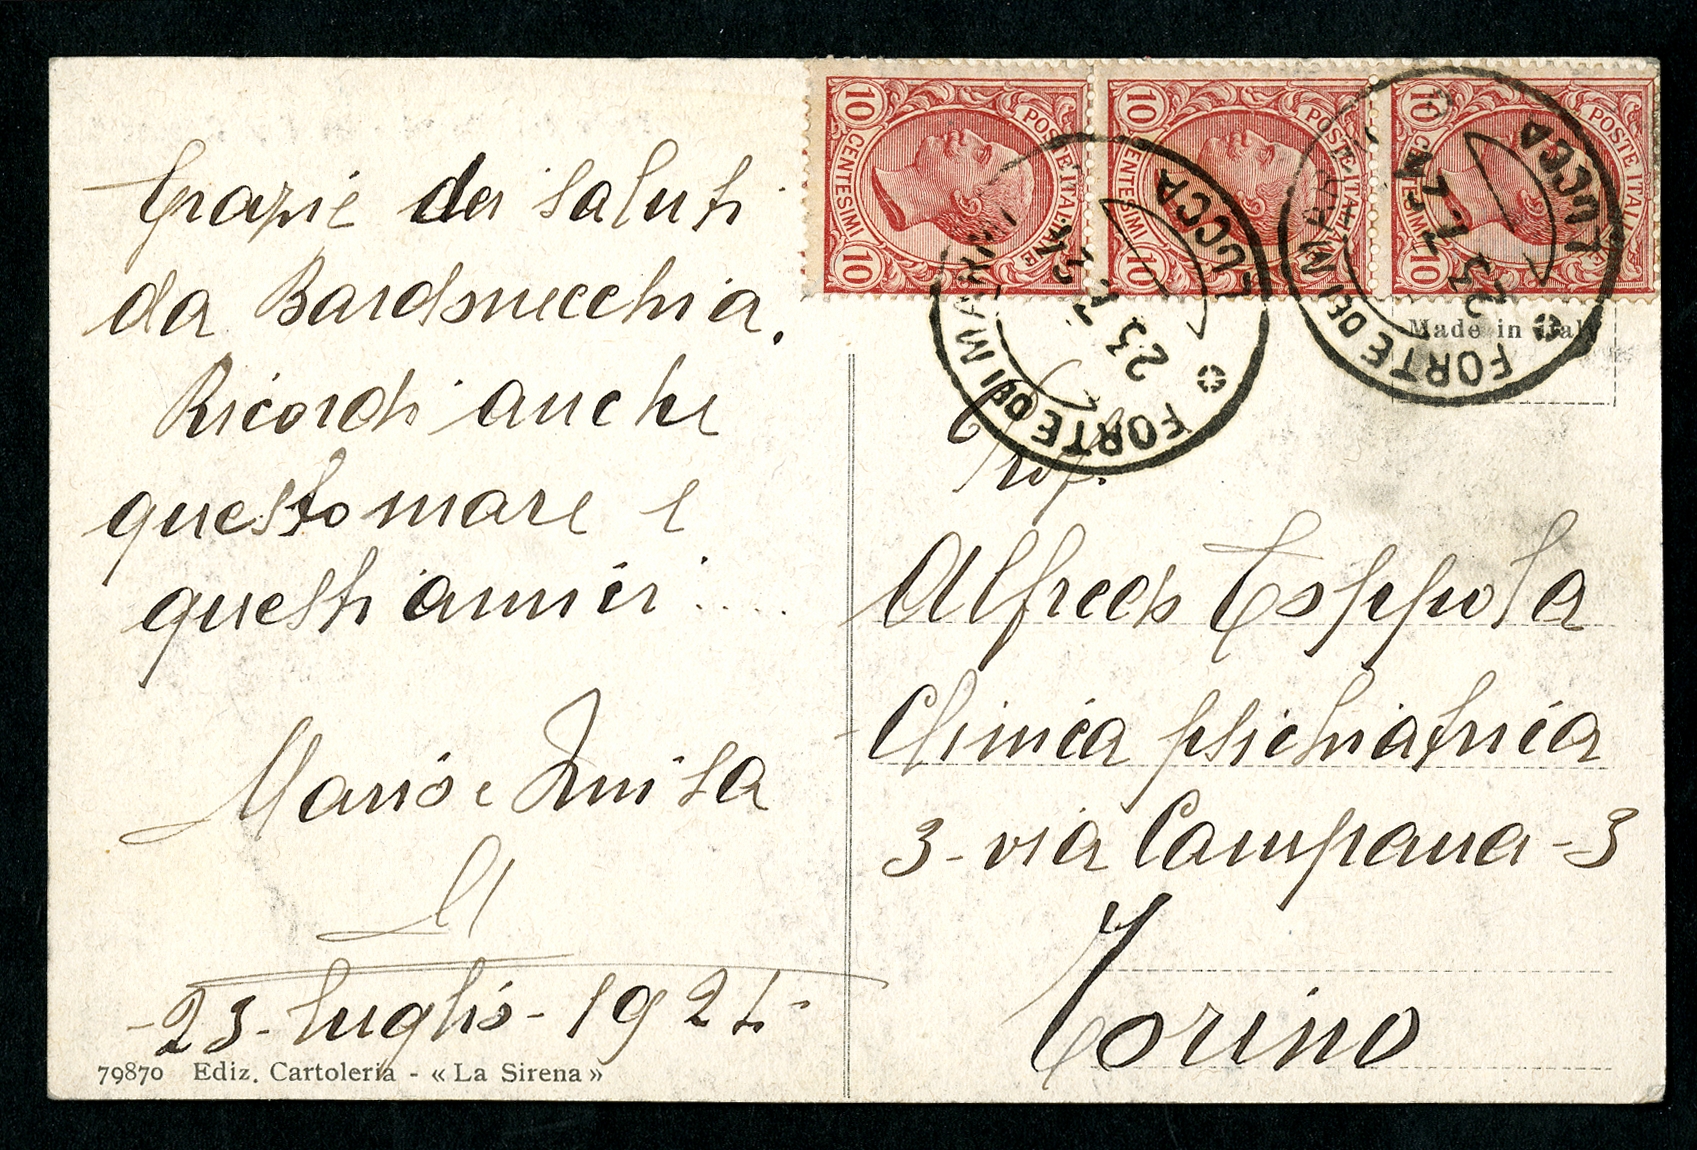 Grazie dei saluti
da Bardonecchia.
Ricordi anche
questo mare e
questi amici....
Mario e Luisa
23 - luglio - 1927 -
79870 Ediz. Cartoleria - « La Sirena »
10 CENTESIMI 10
POSTE ITALIANE
10 CENTESIMI 10
POSTE ITALIANE
10 CENTESIMI 10
POSTE ITALIANE
FORTE DEI MARMI
LUCCA
23 7
FORTE DEI MARMI
LUCCA
23 7 27
Made in Italy
Prof.
Alfredo Coppola
Clinica psichiatrica
3 - via Campana - 3
Torino